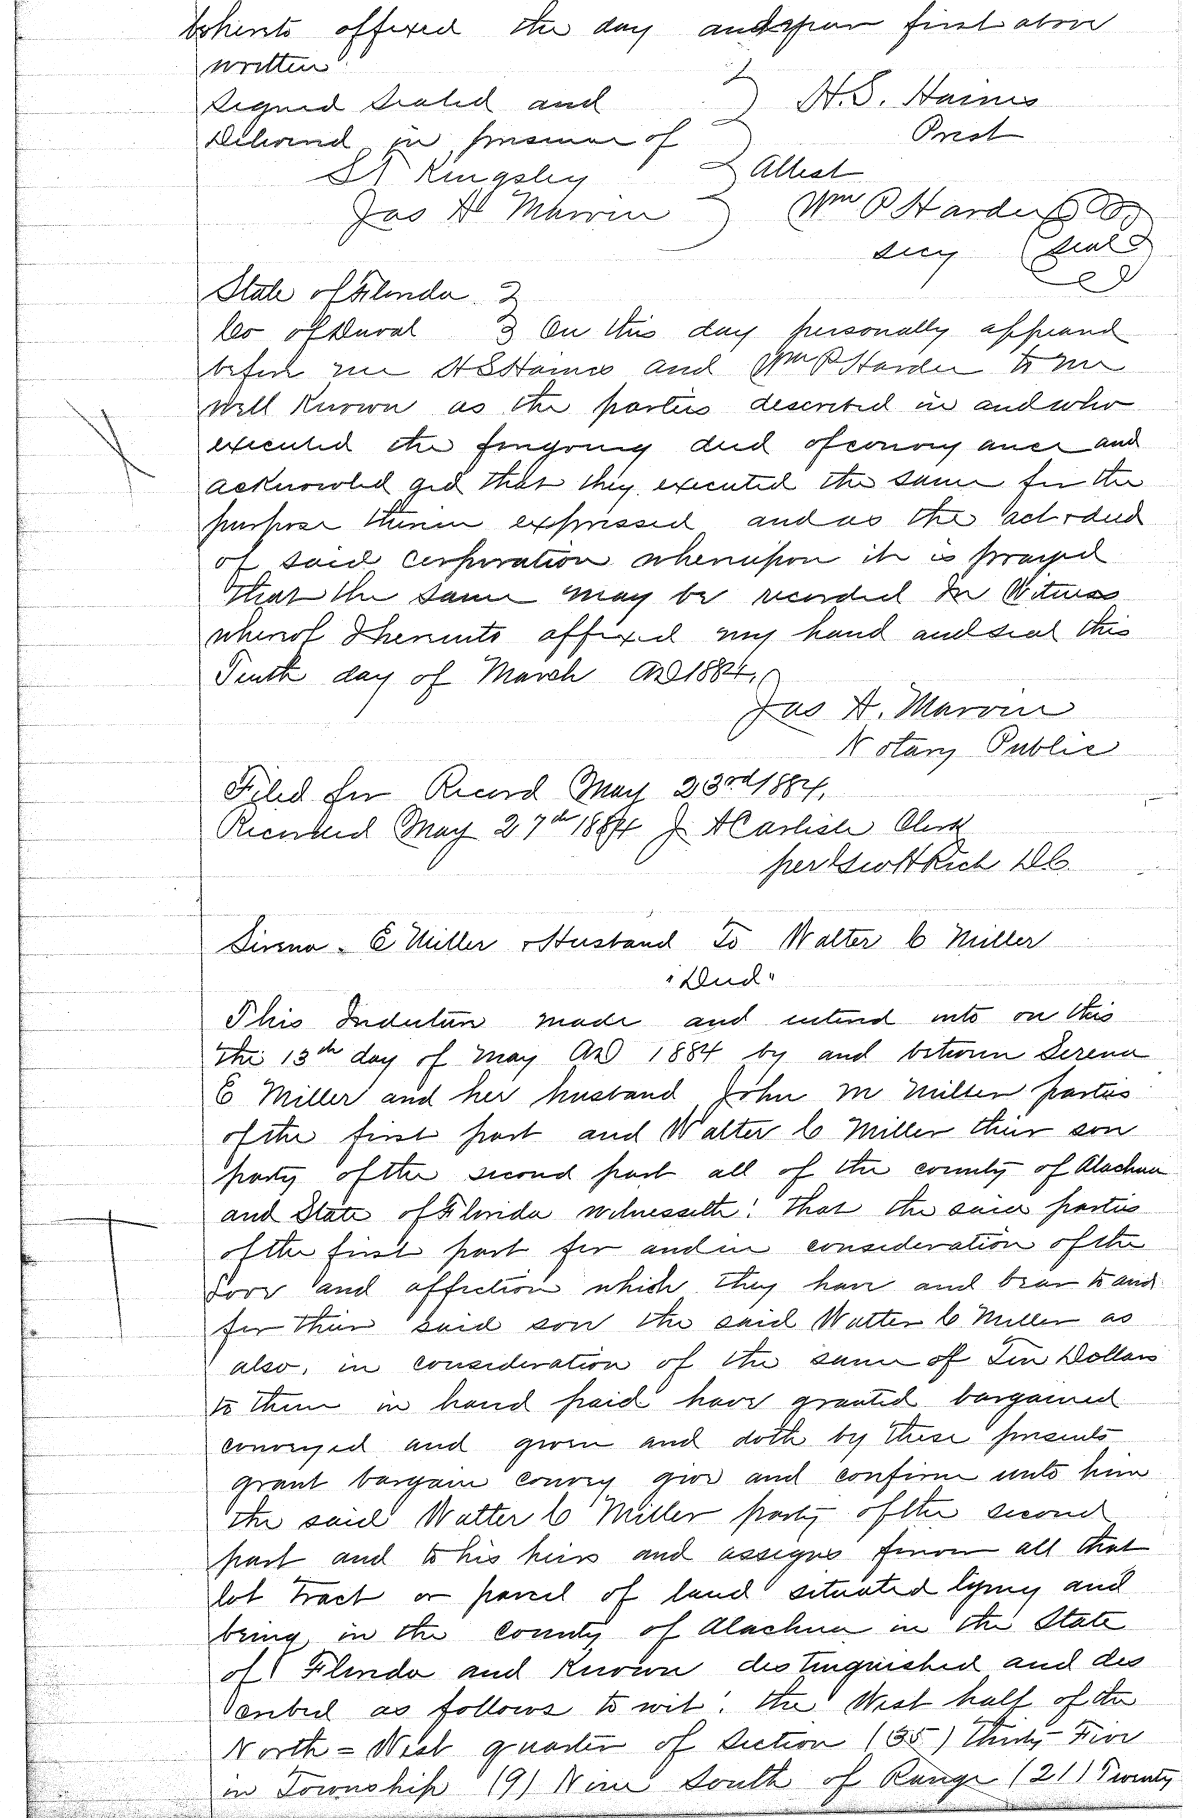 hereto affixed the day and year first above
written
Signed Sealed and } H. S. Haines
Delivered in presence of } Prest
St Kingsley } Attest
Jas A Marvin } Wm P Harden
secy (seal)
State of Florida }
Co of Duval } On this day personally appeared
before me H S Haines and Wm P Harden to me
well Known as the parties described in and who
executed the foregoing deed of convey ance and
acknowled ged that they executed the same for the
purpose therein expressed and as the act & deed
of said Corporation whereupon it is prayed
that the same may be recorded In Witness
whereof I hereunto affixed my hand and seal this
Tenth day of March AD 1884.
Jas A. Marvin
Notary Public
Filed for Record May 23rd 1884.
Recorded May 27th 1884 J A Carlisle Clerk
per Geo H Rich D.C.
Sirena. E Miller & Husband To Walter C Miller
"Deed"
This Indenture made and entered into on this
the 13th day of May AD 1884 by and between Serena
E Miller and her husband John M Miller parties
of the first part and Walter C Miller their son
party of the second part all of the county of Alachua
and State of Florida witnesseth: that the said parties
of the first part for and in consideration of the
love and affection which they have and bear to and
for their said son the said Walter C Miller as
also, in consideration of the sum of Ten Dollars
to them in hand paid have granted bargained
conveyed and given and doth by these presents
grant bargain convey give and confirm unto him
the said Walter C Miller party of the second
part and to his heirs and assigns forever all that
lot tract or parcel of land situated lying and
being in the county of Alachua in the State
of Florida and Known distinguished and des
cribed as follows to wit: the West half of the
North = West quarter of Section (35) Thirty-Five
in Township (9) Nine South of Range (21) Twenty